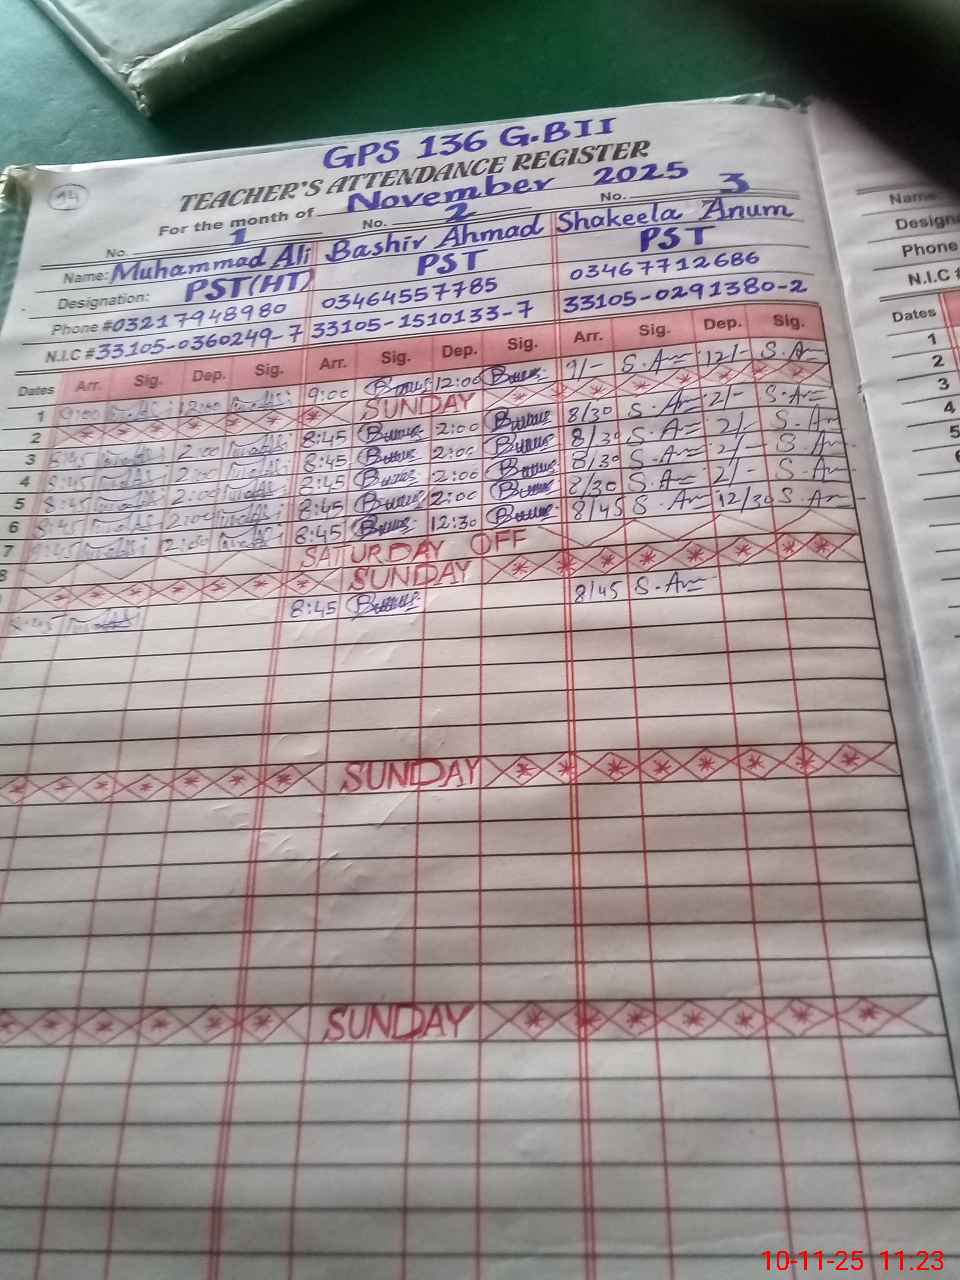 GPS 136 G.BII
14
TEACHER'S ATTENDANCE REGISTER
For the month of November 2025
No. 1 No. 2 No. 3
Name: Muhammad Ali Bashir Ahmad Shakeela Anum
Designation: PST(HT) PST PST
Phone #03217948980 03464557785 03467712686
N.I.C #33105-0360249-7 33105-1510133-7 33105-0291380-2
Dates Arr. Sig. Dep. Sig. Arr. Sig. Dep. Sig. Arr. Sig. Dep. Sig.
1 9:00 12:00 9:00 12:00 9/- S.A 12/- S.A
2 SUNDAY
3 8:45 2:00 8:45 2:00 8/30 S.A 2/- S.A
4 8:45 2:00 8:45 2:00 8/30 S.A 2/- S.A
5 8:45 2:00 8:45 2:00 8/30 S.A 2/- S.A
6 8:45 2:00 8:45 2:00 8/30 S.A 2/- S.A
7 8:45 8:45 12:30 8/45 S.A 12/30 S.A
8 SATURDAY OFF
SUNDAY
8:45 8:45 8/45 S.A
SUNDAY
SUNDAY
Name
Phone
N.I.C #
Dates
1
2
3
4
5
10-11-25 11:23